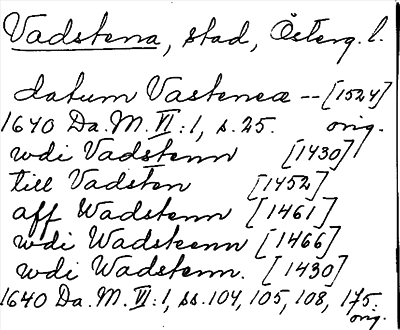 Vadstena, stad, Österg. l.
datum Vasteneæ -- [1524]
1640 Da. M. VI:1, s. 25. orig.
wdi Vadstenn [1430]
till Vadsten [1452]
aff Wadstenn [1461]
wdi Wadsteenn [1466]
wdi Wadstenn. [1430]
1640 Da. M. VI:1, ss. 104, 105, 108, 175.
orig.